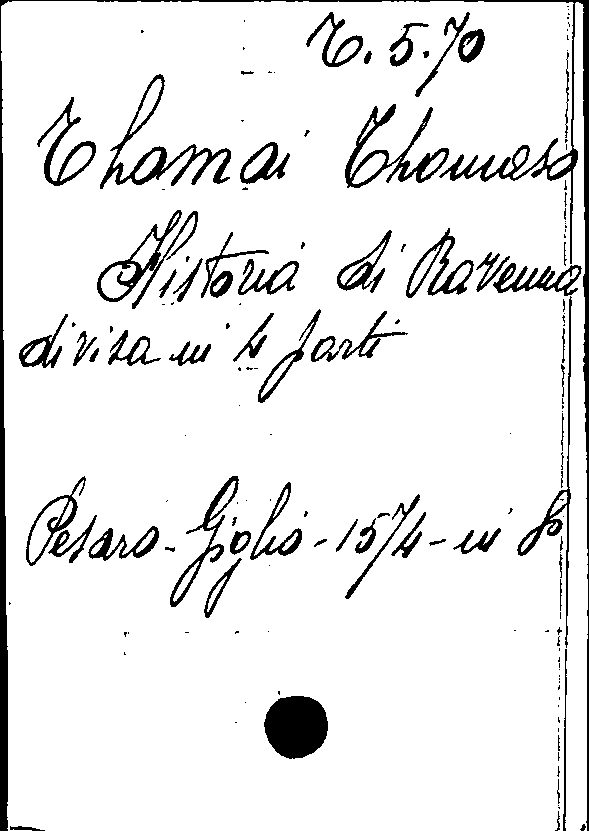 T. 5. 70
Thomai Thomaso
Historia di Ravenna
divisa in 4 parti
Pesaro - Giglio - 1574 - in 8º